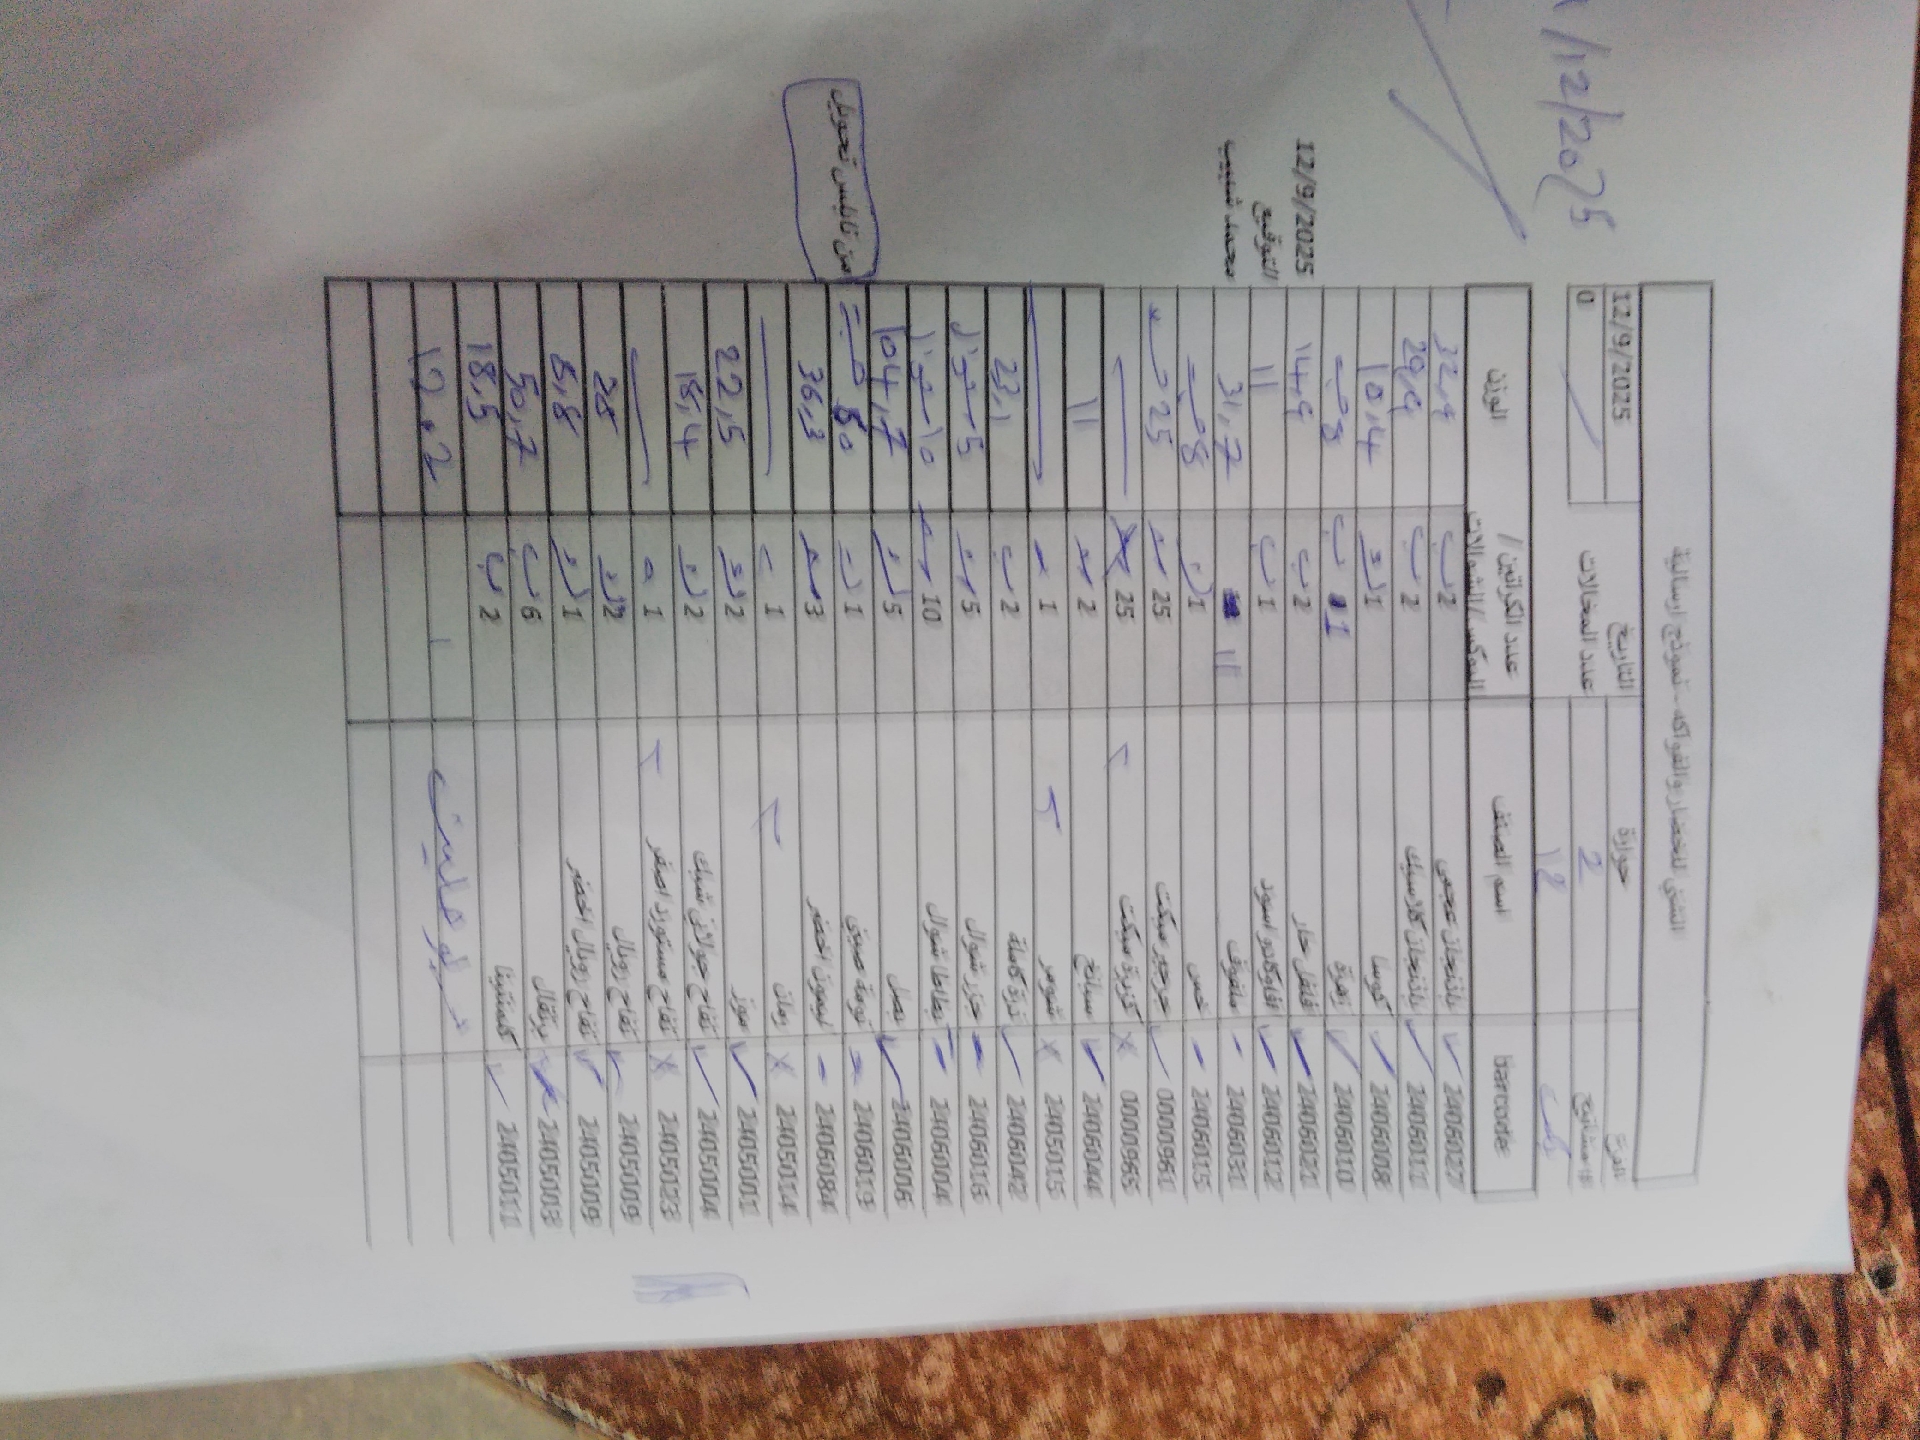 الشني للخضار والفواكه - نموذج ارسالية
الفرع حوارة التاريخ 12/9/2025
2 عدد المخالات 0
12
barcode اسم الصنف عدد الكراتين / البوكس / الشوالات الوزن
2406027 باذنجان عجمي 2 ب
2406011 باذنجان كلاسيك 2 ب 29,9
2406008 كوسا 1 10,4
2406010 زهرة 1 ب 8 حب
2406021 فلفل حار 2 ب 14,9
2406012 افوكادو اسود 1 ب 11
2406031 ملفوف 11 31,7
2406015 خس 1 8 حب
0000961 جرجير ميكت 25 25
0000965 كزبرة ميكت 25
2406044 سبانخ 2 11
2405015 شومر 1
2406042 ذرة كاملة 2 ب 23,1
2406016 جزر شوال 5 5 شوال
2406004 بطاطا شوال 10 10 شوال
2406006 بصل 5 104,7
2406019 ثومة صيني 1 50
2406084 ليمون اخضر 3 36,3
2405014 رمان 1
2405001 موز 2 22,5
2405004 تفاح جولاني شيك 2 18,4
2405023 تفاح مستورد اصفر 1
2405009 تفاح رويال 2 28
2405009 تفاح رويال اخضر 1 8,8
2405003 برتقال 6 ب 50,7
2405011 كلمنتينا 2 ب 18,5
12.2
12/9/2025
التوقيع
محمد شبيب
من نابلس تحويل